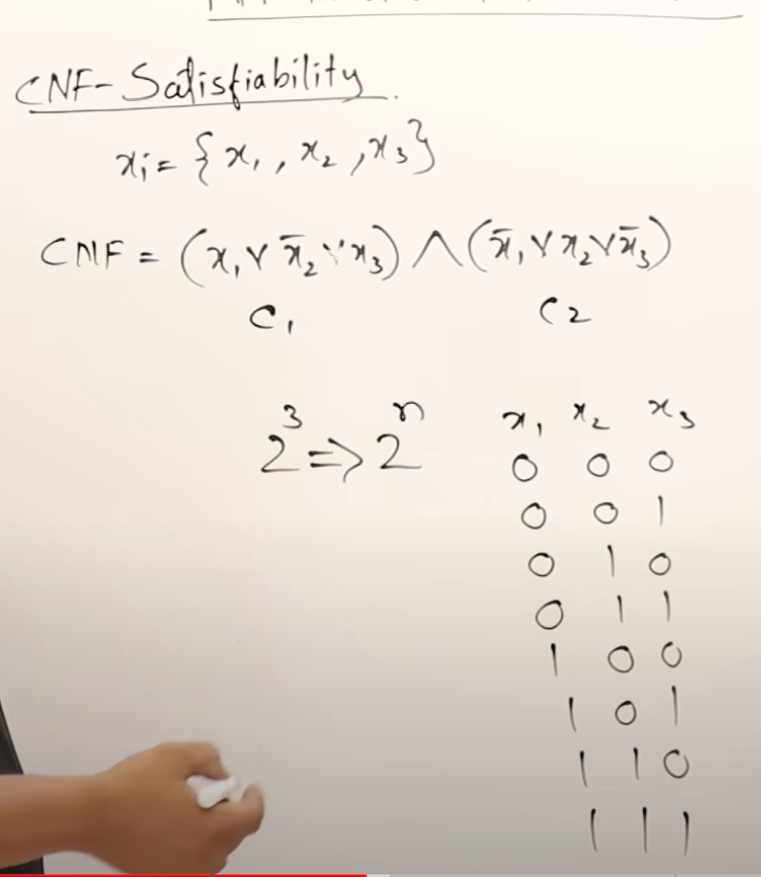 CNF-Satisfiability.
xᵢ = {x₁, x₂, x₃}
CNF = (x₁ ∨ x̄₂ ∨ x₃) ∧ (x̄₁ ∨ x₂ ∨ x̄₃)
C₁ C₂
2³ => 2ⁿ
x₁ x₂ x₃
0 0 0
0 0 1
0 1 0
0 1 1
1 0 0
1 0 1
1 1 0
1 1 1